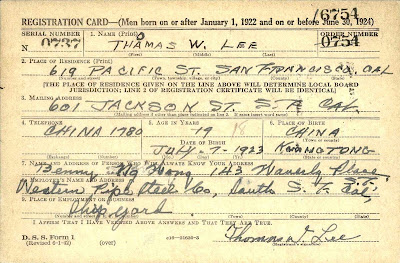 16754
REGISTRATION CARD—(Men born on or after January 1, 1922 and on or before June 30, 1924)
SERIAL NUMBER 1. NAME (Print) ORDER NUMBER
N 0737 THAMAS W. LEE 0754
2. PLACE OF RESIDENCE (Print)
619 PACIFIC ST. SAN FRANCISCO, CAL
(Town, township, village, or city) (County) (State)
[THE PLACE OF RESIDENCE GIVEN ON THE LINE ABOVE WILL DETERMINE LOCAL BOARD
JURISDICTION; LINE 2 OF REGISTRATION CERTIFICATE WILL BE IDENTICAL]
3. MAILING ADDRESS
601 JACKSON ST. S.F. CAL.
[Mailing address if other than place indicated on line 2. If same insert word same]
4. TELEPHONE 5. AGE IN YEARS 6. PLACE OF BIRTH
CHINA 1780 19 18 CHINA
DATE OF BIRTH
JULY - 7 - 1923 KWANGTONG
7. NAME AND ADDRESS OF PERSON WHO WILL ALWAYS KNOW YOUR ADDRESS
Benny Ng Wong 143 Waverly Place
8. EMPLOYER'S NAME AND ADDRESS
Western Pipe Steel Co, South S. F. Cal,
9. PLACE OF EMPLOYMENT OR BUSINESS
Ship yard.
I AFFIRM THAT I HAVE VERIFIED ABOVE ANSWERS AND THAT THEY ARE TRUE.
D. S. S. Form 1
(Revised 6-1-42) (over) Thomas W. Lee